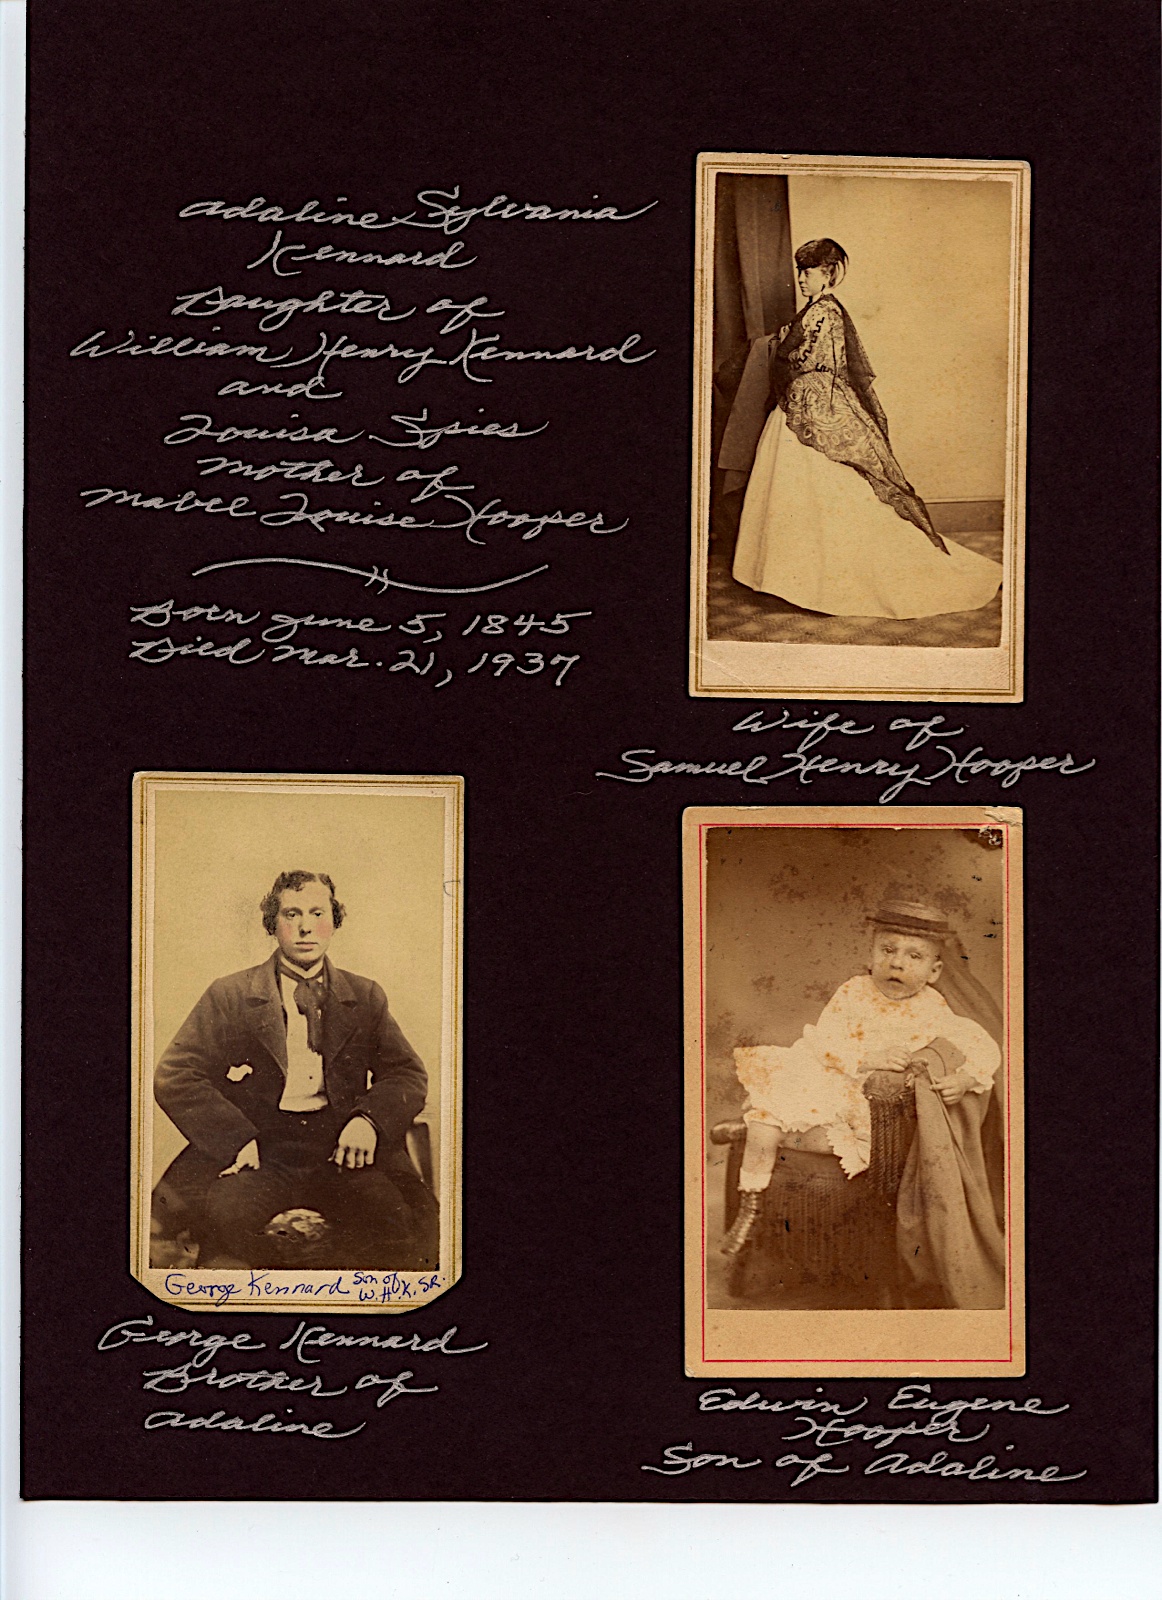 Adaline Sylvania
Kennard
Daughter of
William Henry Kennard
and
Louisa Spies
Mother of
Mabel Louise Hooper
Born June 5, 1845
Died Mar. 21, 1937
Wife of
Samuel Henry Hooper
George Kennard Son of
W.H.K. SR.
George Kennard
Brother of
Adaline
Edwin Eugene
Hooper
Son of Adaline